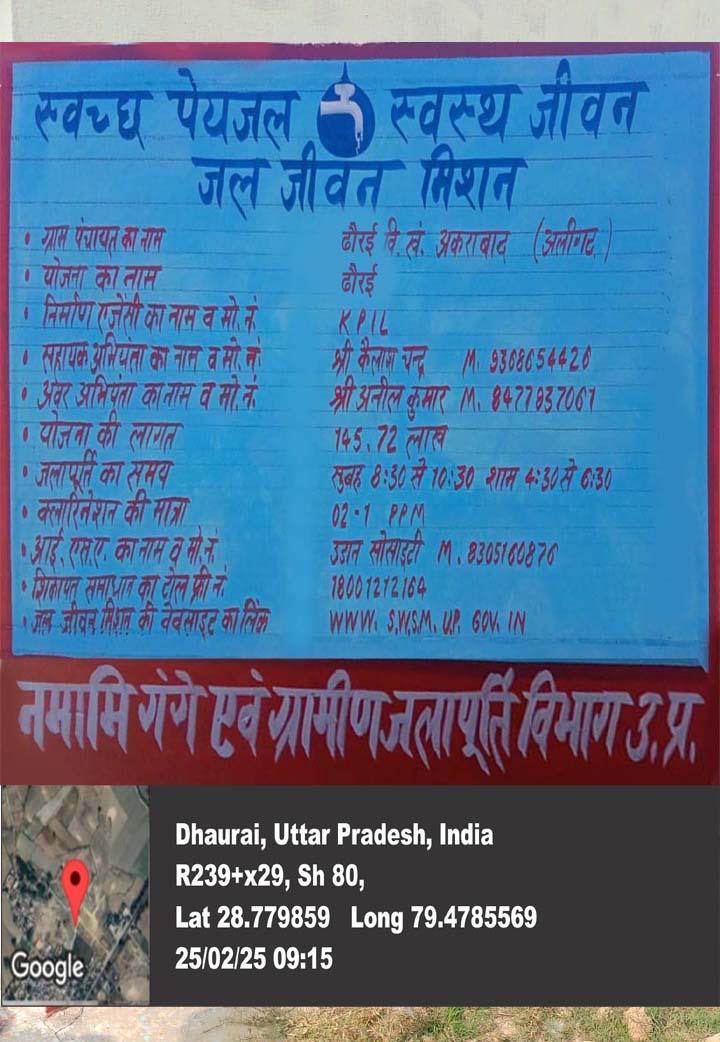 स्वच्छ पेयजल स्वस्थ जीवन
जल जीवन मिशन
• ग्राम पंचायत का नाम ढौरई वि. खं. अकराबाद (अलीगढ़)
• योजना का नाम ढौरई
• निर्माण एजेंसी का नाम व मो. नं. KPIL
• सहायक अभियंता का नाम व मो. नं. श्री कैलाश चन्द्र M. 9368654426
• अवर अभियंता का नाम व मो. नं. श्री अनील कुमार M. 8477837061
• योजना की लागत 145.72 लाख
• जलापूर्ति का समय सुबह 8:30 से 10:30 शाम 4:30 से 6:30
• क्लारिनेशन की मात्रा 02-1 PPM
• आई. एस.ए. का नाम व मो. नं. उडान सोसाइटी M. 8305160876
• शिकायत समाधान का टोल फ्री नं. 18001212164
• जल जीवन मिशन की वेबसाइट का लिंक WWW. S.W.S.M. U.P. GOV. IN
नमामि गंगे एवं ग्रामीण जलापूर्ति विभाग उ. प्र.
Dhaurai, Uttar Pradesh, India
R239+x29, Sh 80,
Lat 28.779859 Long 79.4785569
25/02/25 09:15
Google